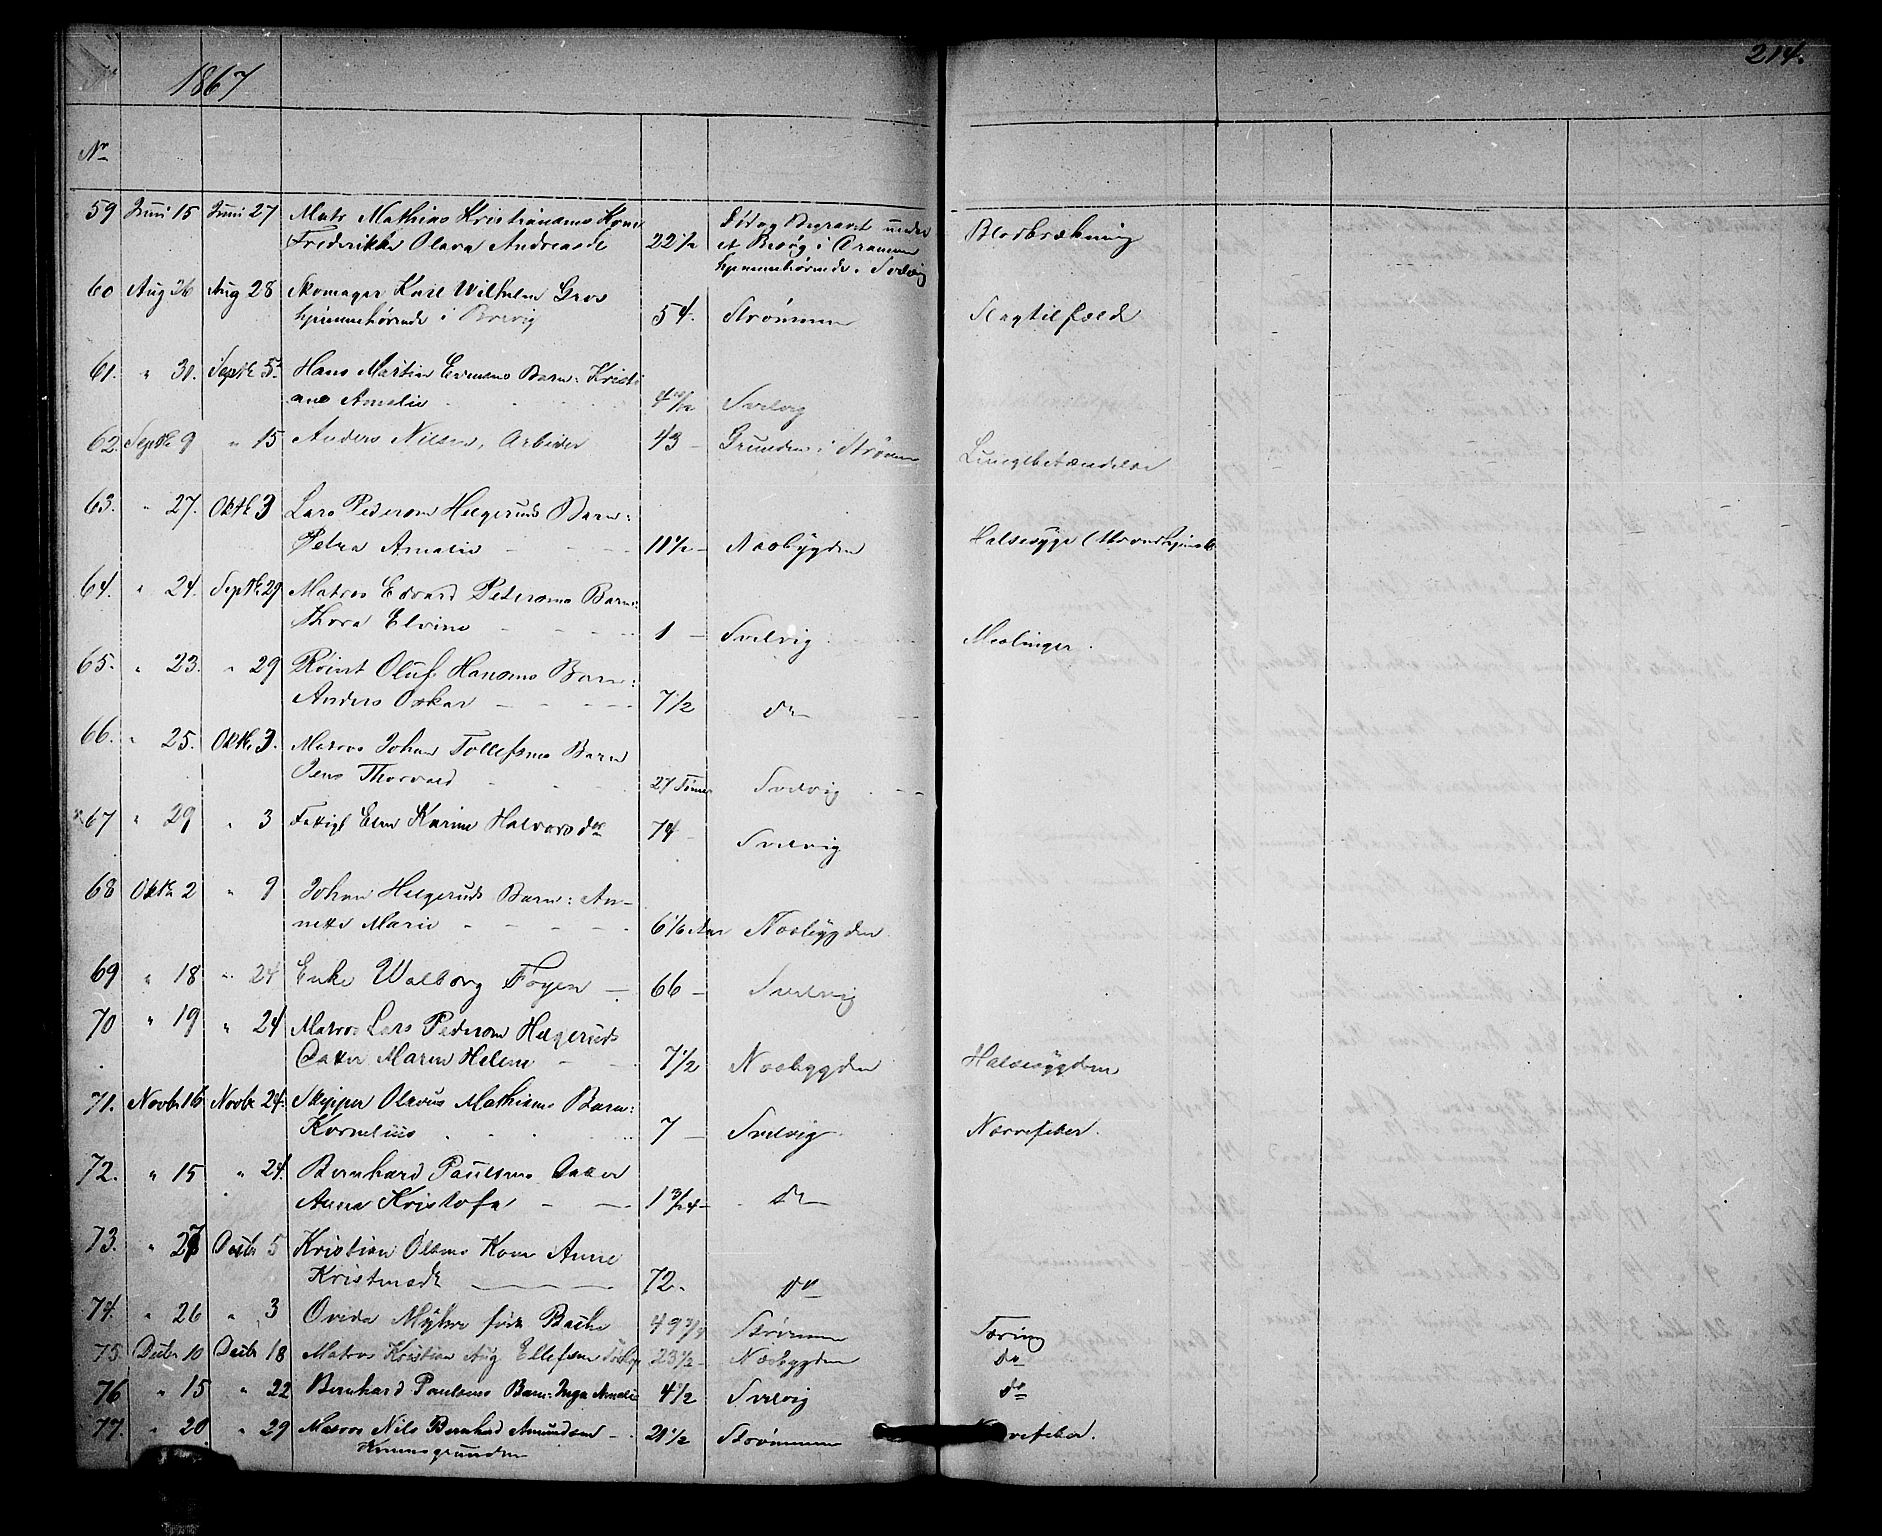 1867
214.
Nr
59 Juni 15 Juni 27 Matr Mathias Kristiansens Kone
Frederikke Olava Andreasdr 22 1/2 Død og Begravet under et Besøg i Drammen hjemmehørende i Svelvig Blodbrækning
60 Aug 26 Aug 28 Skomager Karl Wilhelm Gros
hjemmehørende i Brevig 54. Strømmen Slagtilfælde
61. " 31. Septbr 5. Hans Martin Evensens Barn: Kristi
ane Amalie Svelvig
62. Septbr 9 " 15 Anders Nilsen, Arbeider 43 - Grunden i Strømm Lungebetændelse
63. " 27. Oktbr 3 Lars Pedersen Helgeruds Barn:
Petra Amalie 11 1/2 - Nosbygden Halsesyge
64. " 24. Septbr 29 Matros Edvard Pedersens Barn:
Thora Elvine 1 - Svelvig Meslinger.
65. " 23. " 29 Oluf Hansens Barn:
Anders Oskar 7 1/2 do
66. " 25. Oktbr 3. Matros Johan Tollefsens Barn
Jens Thorvald 27 Timer Svelvig
67 " 29 " 3 Fattigl Elen Karine Halvorsdr 74 - Svelvig
68 Oktbr 2 " 9 Johan Helgeruds Barn: An-
nette Marie 6 1/6 Aar Nosbygden
69 " 18 " 24 Enke Walborg Foyen 66 - Svelvig
70 " 19 " 24 Matros Lars Pedersen Helgeruds
Datter Maren Helene 7 1/2 Nosbygden Halsesygdom
71. Novbr 16 Novbr 24. Skipper Olavus Mathisens Barn:
Kornelius 7 - Svelvig Nervefeber.
72. " 15 " 24. Bernhard Paulsens Datter
Anna Kristofa 1 do
73. " Decbr 5 Kristian Olsens Kone Anne
Kristensdtr 72. do
74. " 26 " 3 Ovida Myhre født Bache 49 Strømmen Tæring
75. Decbr 10 Decbr 18 Matros Kristian Aug Ellefsen 23 1/2 - Nosbygden do
76 " 15 " 22 Bernhard Paulsens Barn: Inga Amalie 4 1/2 Svelvig do
77. " 20 " 29 Matros Nils Bernhard Amundsen 21 1/2 Strømmen Nervefeber.